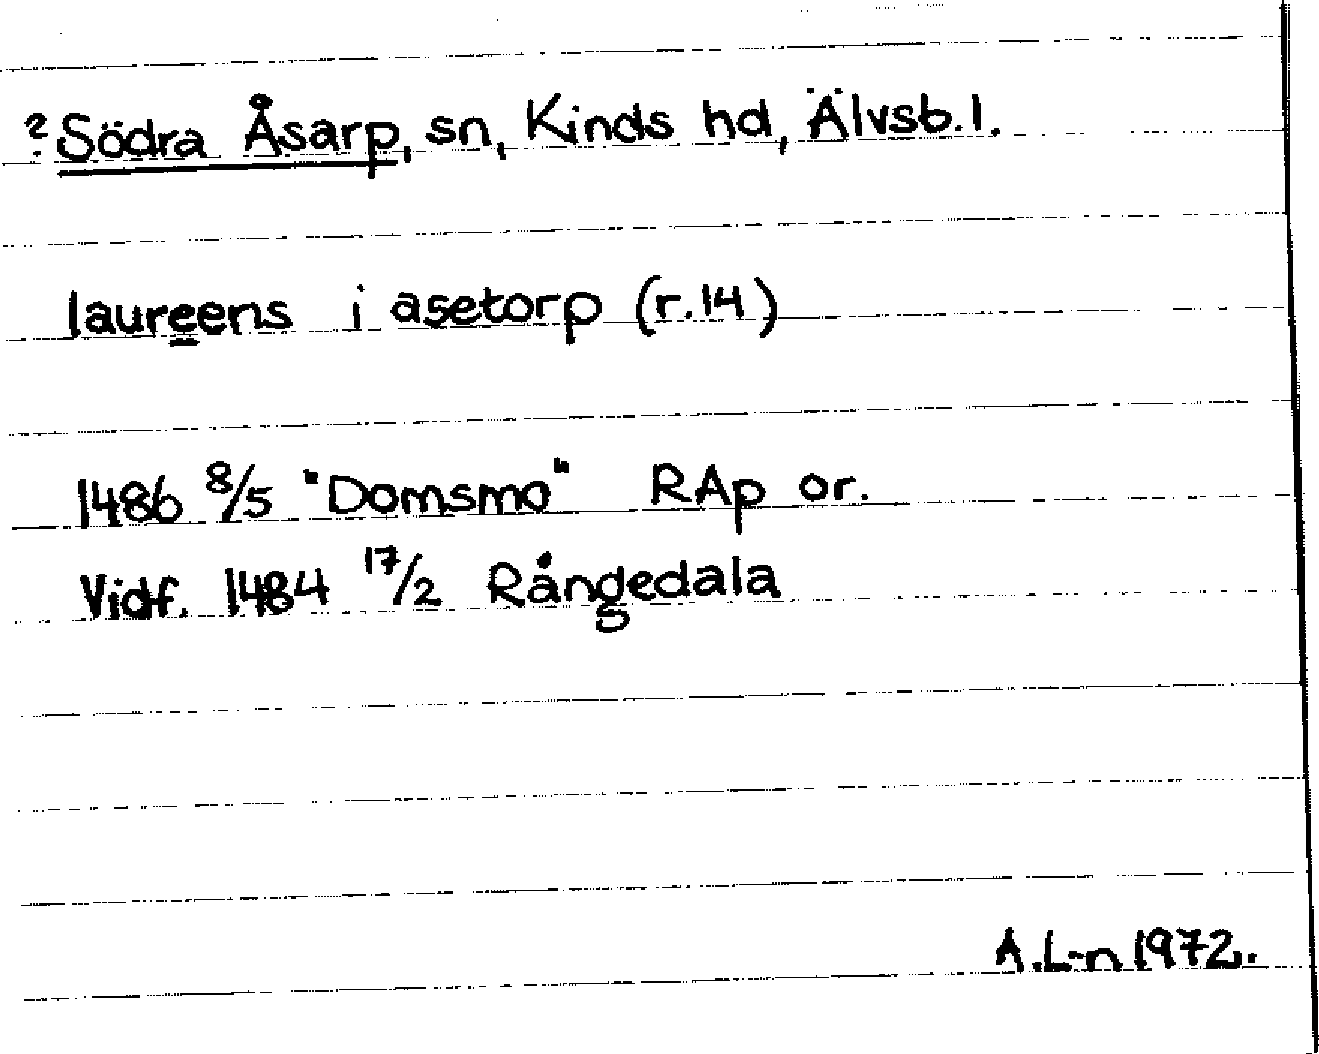 ? Södra Åsarp, sn, Kinds hd, Älvsb. l.
laureens i asetorp (r. 14)
1486 8/5 "Domsmo" RAp or.
Vidf. 1484 17/2 Rångedala
A. L-n 1972.